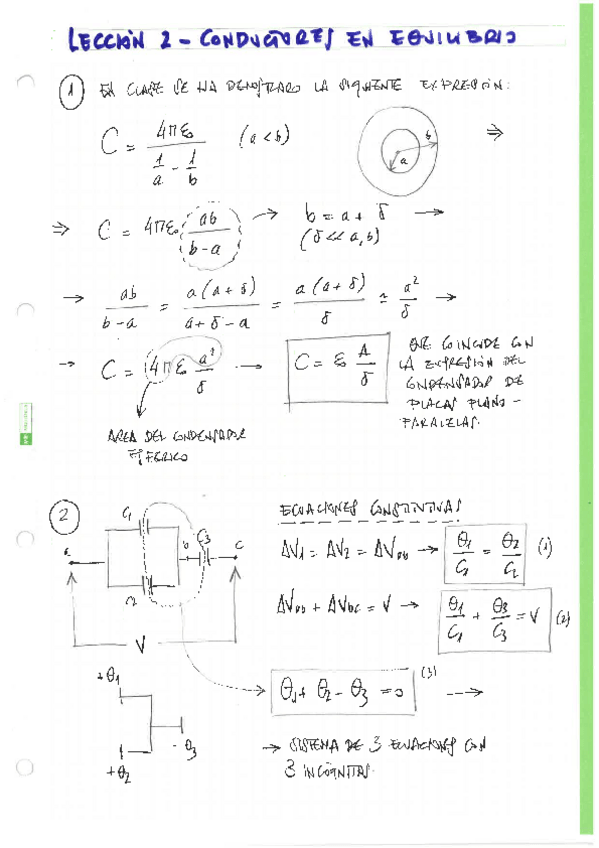 LECCIÓN 2 - CONDUCTORES EN EQUILIBRIO
1 EN CLASE SE HA DEMOSTRADO LA SIGUIENTE EXPRESIÓN:
C = 4πε₀ / (1/a - 1/b) (a < b) a b ⇒
⇒ C = 4πε₀ ab/(b-a) → b = a + δ (δ << a, b) →
→ ab/(b-a) = a(a+δ)/(a+δ-a) = a(a+δ)/δ ≃ a²/δ →
→ C = 4πε₀ a²/δ → C = ε₀ A/δ
QUE COINCIDE CON
LA EXPRESIÓN DEL
CONDENSADOR DE
PLACAS PLANO-
PARALELAS.
ÁREA DEL CONDENSADOR
ESFÉRICO
2
C₁
C₃
a b c
C₂
V
+Q₁
+Q₂
-Q₃
ECUACIONES CONSTITUTIVAS
ΔV₁ = ΔV₂ = ΔVab → Q₁/C₁ = Q₂/C₂ (1)
ΔVab + ΔVbc = V → Q₁/C₁ + Q₃/C₃ = V (2)
Q₁ + Q₂ - Q₃ = 0 (3) →
→ SISTEMA DE 3 ECUACIONES CON
3 INCÓGNITAS.